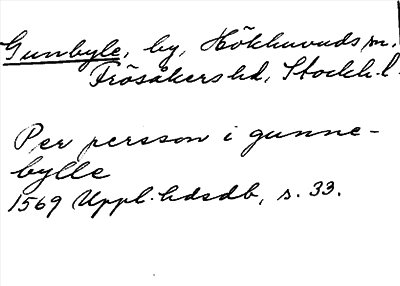 Gunbyle, by, Hökhuvuds sn.
Frösåkers hd, Stockh.l.
Per persson i gunne-
bylle
1569 Uppl. hdsdb, s. 33.